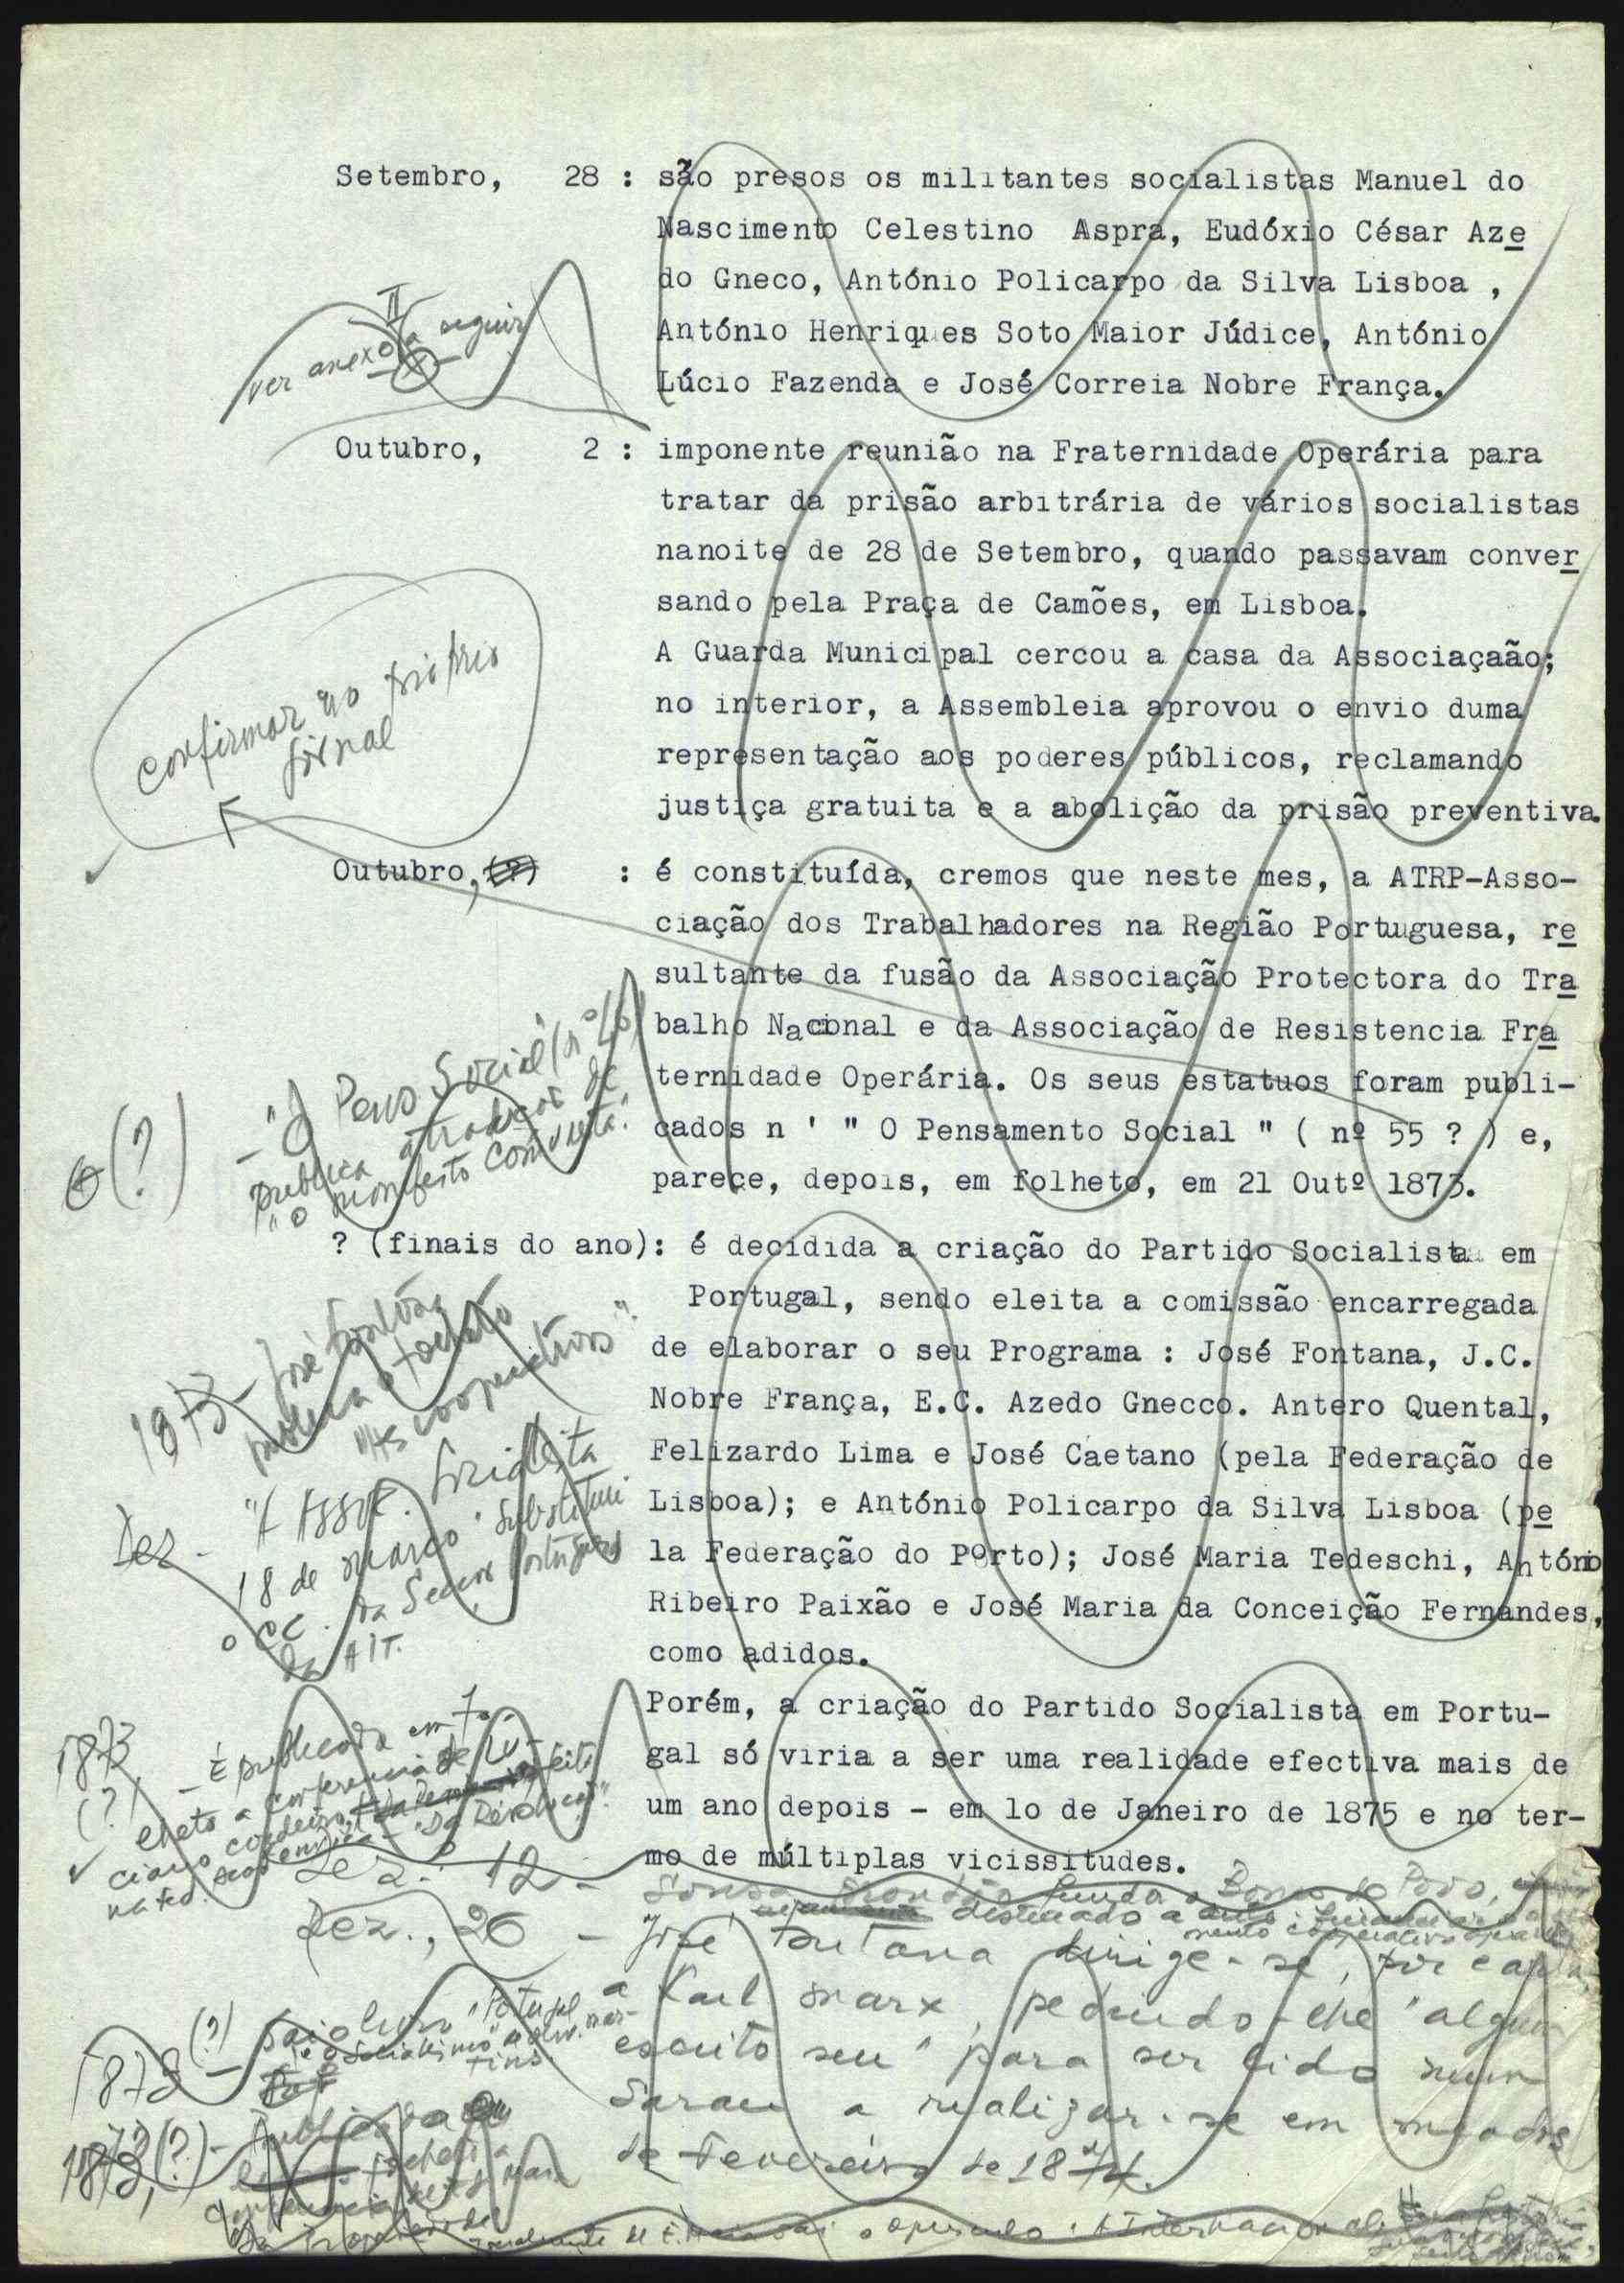 Setembro, 28 : são presos os militantes socialistas Manuel do
Nascimento Celestino Aspra, Eudóxio César Aze
do Gneco, António Policarpo da Silva Lisboa ,
António Henriques Soto Maior Júdice, António
Lúcio Fazenda e José Correia Nobre França.
II
ver anexo a seguir
Outubro, 2 : imponente reunião na Fraternidade Operária para
tratar da prisão arbitrária de vários socialistas
nanoite de 28 de Setembro, quando passavam conver
sando pela Praça de Camões, em Lisboa.
A Guarda Municipal cercou a casa da Associaçaão;
no interior, a Assembleia aprovou o envio duma
representação aos poderes públicos, reclamando
justiça gratuita e a abolição da prisão preventiva.
confirmar no próprio
jornal
Outubro, (?) : é constituída, cremos que neste mes, a ATRP-Asso-
ciação dos Trabalhadores na Região Portuguesa, re
sultante da fusão da Associação Protectora do Tra
balho Nacional e da Associação de Resistencia Fra
ternidade Operária. Os seus estatuos foram publi-
cados n ' " O Pensamento Social " ( nº 55 ? ) e,
parece, depois, em folheto, em 21 Outº 1873.
(?)
- "O Pens Social" (nº
publica a tradução de
"o manifesto comunista."
? (finais do ano): é decidida a criação do Partido Socialista em
Portugal, sendo eleita a comissão encarregada
de elaborar o seu Programa : José Fontana, J.C.
Nobre França, E.C. Azedo Gnecco. Antero Quental,
Felizardo Lima e José Caetano (pela Federação de
Lisboa); e António Policarpo da Silva Lisboa (pe
la Federação do Porto); José Maria Tedeschi, António
Ribeiro Paixão e José Maria da Conceição Fernandes,
como adidos.
Porém, a criação do Partido Socialista em Portu-
gal só viria a ser uma realidade efectiva mais de
um ano depois - em lo de Janeiro de 1875 e no ter-
mo de múltiplas vicissitudes.
1873 - José Fontana
publica o folheto
"As cooperativas".
Dez - "A Assoc. Socialista
18 de março" substitui
o CC. da Secção Portuguesa
da AIT.
1873
(?)
- É publicada em fo-
lheto a conferência de Lu-
ciano Cordeiro, feita
na "Da Revolução".
Dez. 12 - Sousa Brandão funda o Banco do Povo,
destinado a financiar o
mento cooperativo
Dez., 26 - José Fontana dirige-se, por carta,
a Karl Marx, pedindo-lhe "algum
escrito seu" para ser lido num
Sarau a realizar-se em meados
de Fevereiro de 1874.
1873 (?) - Sai o livro "Portugal
e o Socialismo" de Oliv. Mar-
tins.
1873, (?) - Publicada em
folheto a
conferência
"Da Propriedade"
sai o opúsculo "A Internacional